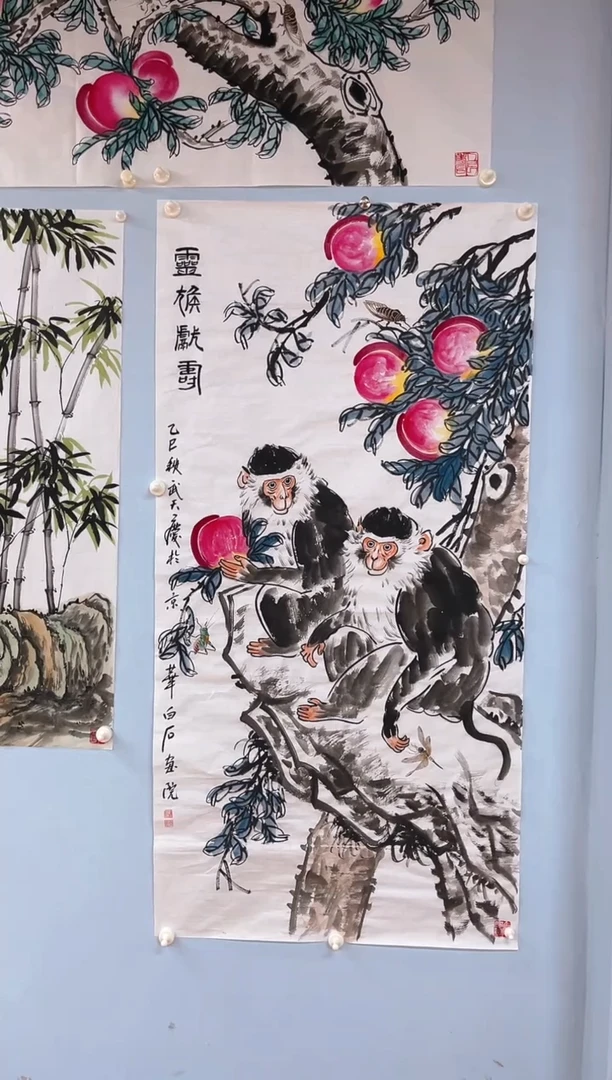 靈猴獻壽
乙巳秋武大慶於京華白石畫院